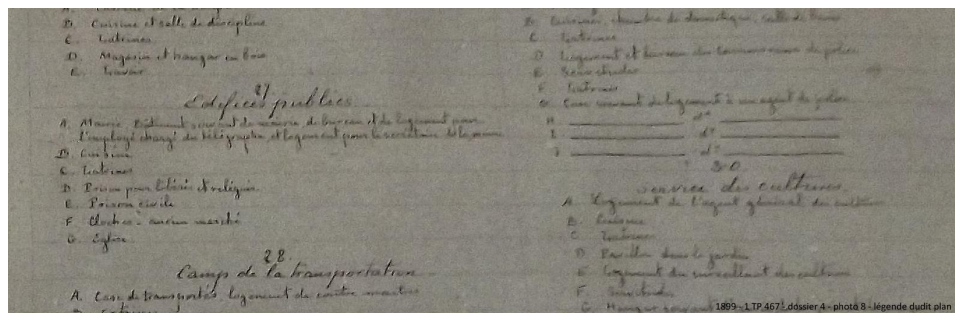 B. Cuisine et salle de discipline
C. Latrines
D. Magasin et hangar en bois
E. Lavoir
27
Edifices publics
A. Mairie. Bâtiment servant de mairie, de bureau et de logement pour
l'employé chargé du télégraphe, et logement pour le secrétaire de la mairie
B. Cuisine
C. Latrines
D. Prison pour libérés et relégués
E. Prison civile
F. Cloches - ancien marché
G. Eglise
28.
Camp de la transportation
A. Case de transportés, logement de contre maîtres
B. Cuisine, chambre de domestique, salle de bains
C. Latrines
D. Logement et bureau du commissaire de police
E. Servitudes
F. Latrines
G. Case servant de logement à un agent de police
H. d°
I. d°
J. d°
30.
Service des cultures
A. Logement de l'agent général des cultures
B. Cuisine
C. Latrines
D. Pavillon dans le jardin
E. Logement du surveillant des cultures
F. Servitudes
G. Hangar servant
1899 - 1 TP 467 - dossier 4 - photo 8 - légende dudit plan